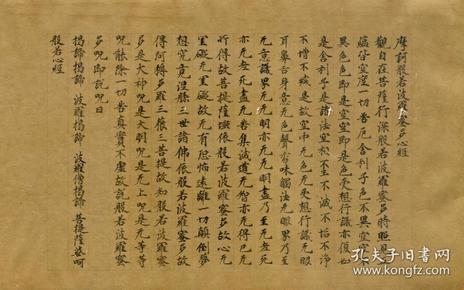 摩訶般若波羅蜜多心經
觀自在菩薩行深般若波羅蜜多時照見五
蘊皆空度一切苦厄舍利子色不異空空不
異色色即是空空即是色受想行識亦復如
是舍利子是諸法空相不生不滅不垢不淨
不增不減是故空中无色无受想行識无眼
耳鼻舌身意无色聲香味觸法无眼界乃至
无意識界无无明亦无无明盡乃至无老死
亦无老死盡无苦集滅道无智亦无得以无
所得故菩提薩埵依般若波羅蜜多故心无
罣礙无罣礙故无有恐怖遠離一切顛倒夢
想究竟涅槃三世諸佛依般若波羅蜜多故
得阿耨多羅三藐三菩提故知般若波羅蜜
多是大神呪是大明呪是无上呪是无等等
呪能除一切苦真實不虛故說般若波羅蜜
多呪即說呪曰
揭諦揭諦 波羅揭諦 波羅僧揭諦 菩提薩婆訶
般若心經
孔夫子旧书网
www.kongfz.com